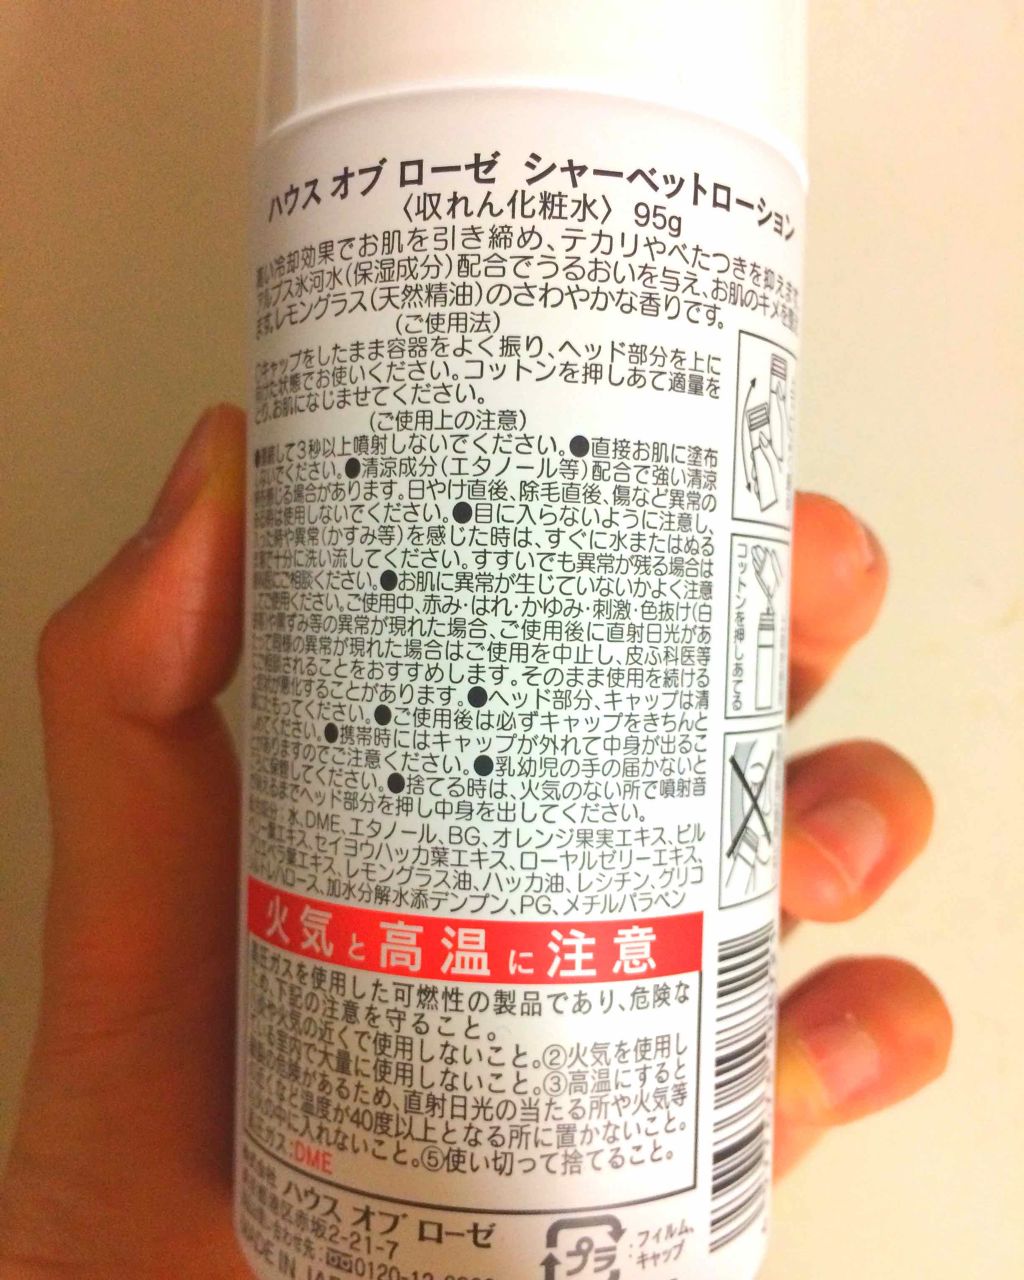 ハウス オブ ローゼ シャーベットローション
〈収れん化粧水〉 95g
い冷却効果でお肌を引き締め、テカリやべたつきを抑えます。
アルプス氷河水(保湿成分)配合でうるおいを与え、お肌のキメを
ます。レモングラス(天然精油)のさわやかな香りです。
(ご使用法)
キャップをしたまま容器をよく振り、ヘッド部分を上に
けた状態でお使いください。コットンを押しあて適量を
とり、お肌になじませてください。
(ご使用上の注意)
して3秒以上噴射しないでください。●直接お肌に塗布
しないでください。●清涼成分(エタノール等)配合で強い清涼
感じる場合があります。日やけ直後、除毛直後、傷など異常の
時は使用しないでください。●目に入らないように注意し、
った時や異常(かすみ等)を感じた時は、すぐに水またはぬる
で十分に洗い流してください。すすいでも異常が残る場合は
にご相談ください。●お肌に異常が生じていないかよく注意
してご使用ください。ご使用中、赤み・はれ・かゆみ・刺激・色抜け(白
や黒ずみ等の異常が現れた場合、ご使用後に直射日光があ
って同様の異常が現れた場合はご使用を中止し、皮ふ科医等
にご相談されることをおすすめします。そのまま使用を続ける
と症状が悪化することがあります。●ヘッド部分、キャップは清
にたもってください。●ご使用後は必ずキャップをきちんと
しめてください。●携帯時にはキャップが外れて中身が出るこ
とがありますのでご注意ください。●乳幼児の手の届かないと
ころに保管してください。●捨てる時は、火気のない所で噴射音
が消えるまでヘッド部分を押し中身を出してください。
水、DME、エタノール、BG、オレンジ果実エキス、ビル
ベリー葉エキス、セイヨウハッカ葉エキス、ローヤルゼリーエキス、
アロエベラ葉エキス、レモングラス油、ハッカ油、レシチン、グリコ
シルトレハロース、加水分解水添デンプン、PG、メチルパラベン
火気と高温に注意
高圧ガスを使用した可燃性の製品であり、危険な
ため、下記の注意を守ること。
火気の近くで使用しないこと。②火気を使用し
ている室内で大量に使用しないこと。③高温にすると
破裂の危険があるため、直射日光の当たる所や火気等
の近くなど温度が40度以上となる所に置かないこと。
火の中に入れないこと。⑤使い切って捨てること。
高圧ガス:DME
株式会社 ハウス オブ ローゼ
東京都港区赤坂2-21-7
お問い合わせ先:0120-12-
MADE IN JAPAN
コットンを押しあてる
プラ
:フィルム、
キャップ